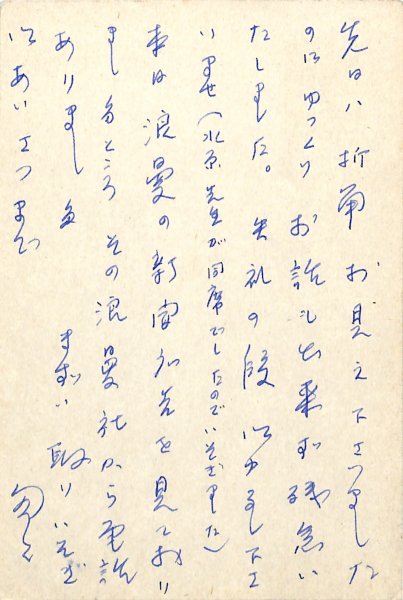 先日ハ折角お見え下さいました
のにゆっくりお話も出来ず残念い
たしました。失礼の段御ゆるし下さ
いませ(水原先生が同席でしたのでいそぎました)
本日浪曼の新聞広告を見ており
ましたところその浪曼社から電話
ありました
まずは取りいそぎ
御あいさつまで
匆々